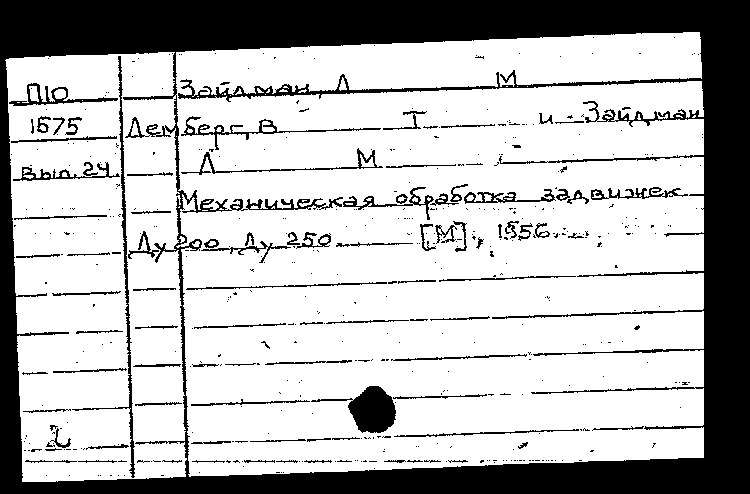 П10 Зайдман, Л М
1575 Лемберг, В Т и Зайдман
Вып. 24 Л М
Механическая обработка задвижек
Ду 200, Ду 250 [М], 1956
2